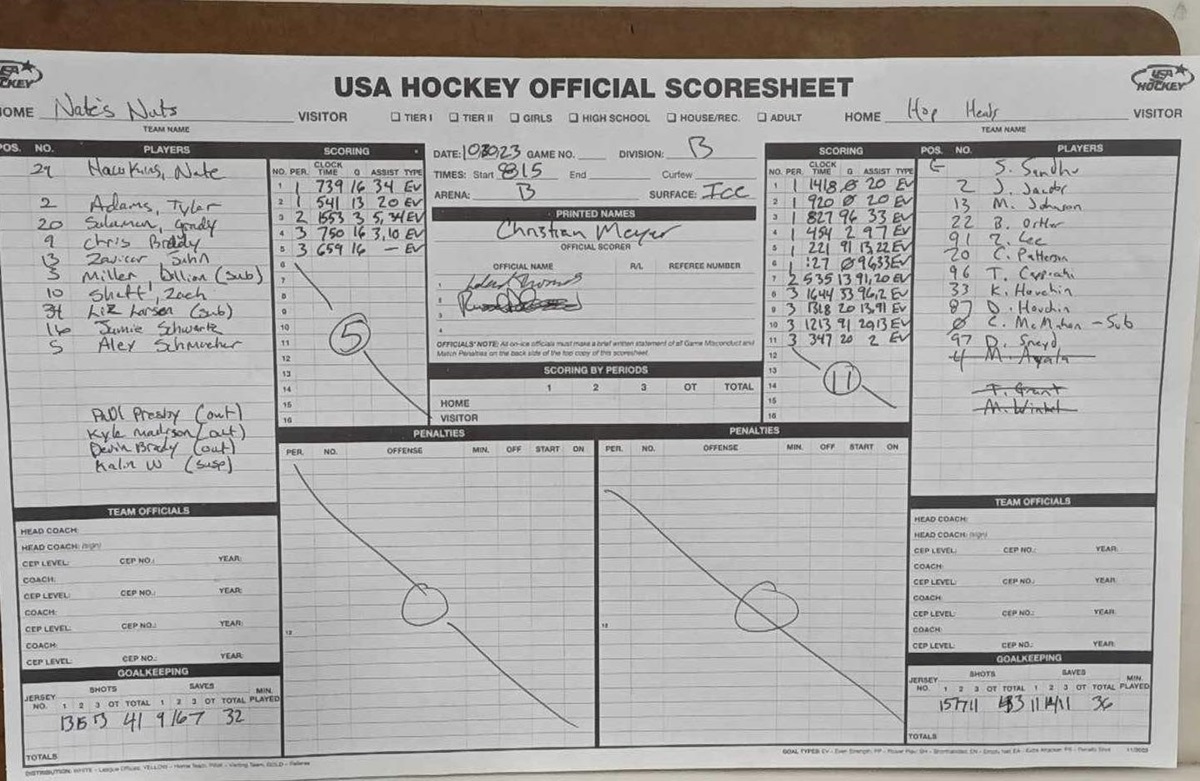 USA HOCKEY OFFICIAL SCORESHEET
HOME Nate's Nuts VISITOR
TEAM NAME
☐ TIER I ☐ TIER II ☐ GIRLS ☐ HIGH SCHOOL ☐ HOUSE/REC. ☐ ADULT
HOME Hop Heads VISITOR
TEAM NAME
POS. NO. PLAYERS
Hawkins, Nate
2 Adams, Tyler
20 Soluman, Grady
9 Chris Braddy
13
3 Miller (sub)
10 Zach
34 Liz Larson (sub)
16 Jamie Schwartz
5 Alex Schmocher
Paul Presby (out)
Kyle Madison (out)
Devin Brady (out)
Kalin W (susp)
TEAM OFFICIALS
HEAD COACH:
HEAD COACH: (sign)
CEP LEVEL: CEP NO.: YEAR:
COACH:
CEP LEVEL: CEP NO.: YEAR:
COACH:
CEP LEVEL: CEP NO.: YEAR:
COACH:
CEP LEVEL: CEP NO.: YEAR:
GOALKEEPING
JERSEY NO. SHOTS 1 2 3 OT TOTAL SAVES 1 2 3 OT TOTAL MIN. PLAYED
41 9 16 7 32
TOTALS
SCORING
NO. PER. CLOCK TIME G ASSIST TYPE
1 1 739 16 34 EV
2 1 541 13 20 EV
3 2 1553 3 5,34 EV
4 3 750 16 3,10 EV
5 3 659 16 — EV
6
7
8
9
10
11
12
13
14
15
16
5
DATE: 103023 GAME NO. DIVISION: B
TIMES: Start 815 End Curfew
ARENA: B SURFACE: Ice
PRINTED NAMES
Christian Meyer
OFFICIAL SCORER
OFFICIAL NAME R/L REFEREE NUMBER
1
2
3
4
OFFICIALS' NOTE: All on-ice officials must make a brief written statement of all Game Misconduct and
Match Penalties on the back side of the top copy of this scoresheet.
SCORING BY PERIODS
1 2 3 OT TOTAL
HOME
VISITOR
SCORING
NO. PER. CLOCK TIME G ASSIST TYPE
1 1 1418 Ø 20 EV
2 1 920 Ø 20 EV
3 1 827 96 33 EV
4 1 454 2 97 EV
5 1 221 91 13,22 EV
6 1 :27 Ø 9633 EV
7 2 535 13 91,20 EV
8 3 1644 33 96,2 EV
9 3 1318 20 13,91 EV
10 3 1213 91 2013 EV
11 3 347 20 2 EV
12
13
14
15
16
11
POS. NO. PLAYERS
G S. Sandhu
2 J. Sandor
13 M. Johnson
22 B. Orther
91 Z. Lee
20 C. Patterson
96 T.
33 K. Houchin
87 D. Houchin
Ø C. McMahon - Sub
97 D. Sneyd
4 M. Ayala
T. Grant
M. Winkel
PENALTIES
PER. NO. OFFENSE MIN. OFF START ON
12
PENALTIES
PER. NO. OFFENSE MIN. OFF START ON
12
TEAM OFFICIALS
HEAD COACH:
HEAD COACH: (sign)
CEP LEVEL: CEP NO.: YEAR:
COACH:
CEP LEVEL: CEP NO.: YEAR:
COACH:
CEP LEVEL: CEP NO.: YEAR:
COACH:
CEP LEVEL: CEP NO.: YEAR:
GOALKEEPING
JERSEY NO. SHOTS 1 2 3 OT TOTAL SAVES 1 2 3 OT TOTAL MIN. PLAYED
36
TOTALS
DISTRIBUTION: WHITE - League Offices, YELLOW - Home Team, PINK - Visiting Team, GOLD - Referee